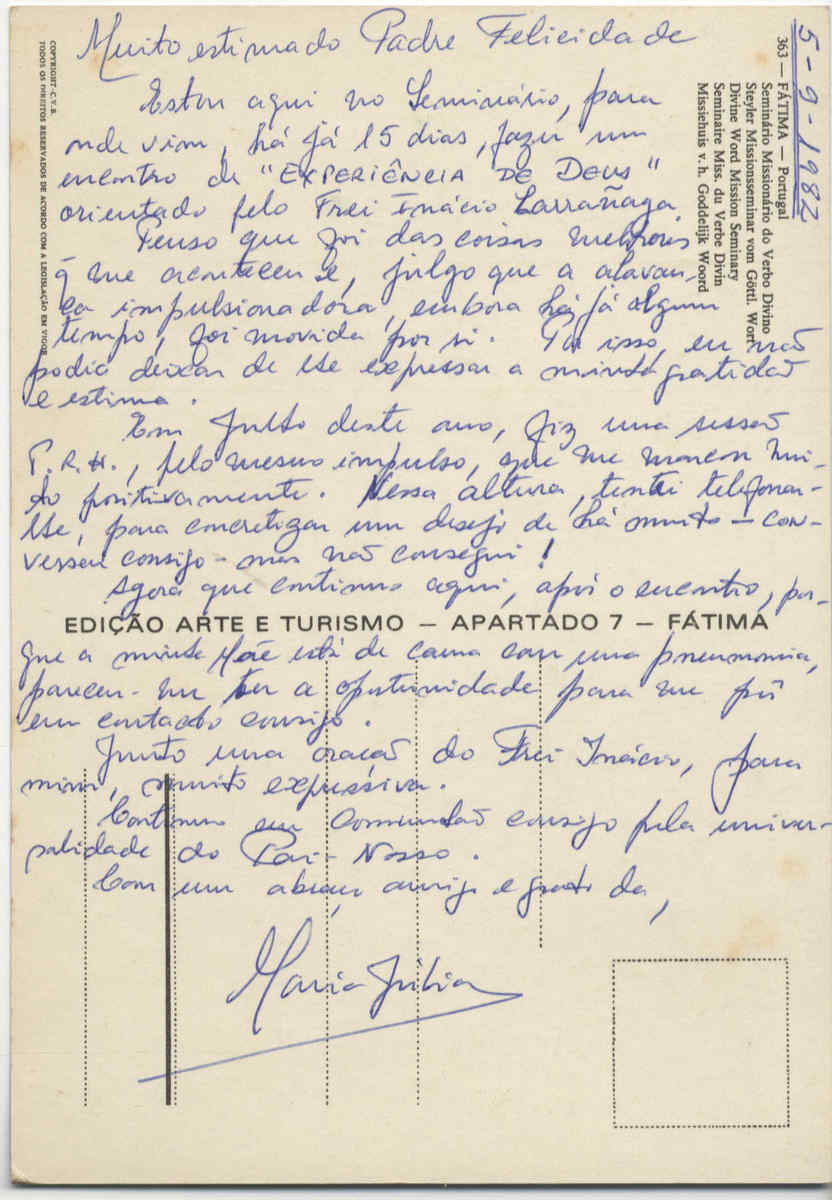 5-9-1982
363 — FÁTIMA — Portugal
Seminário Missionário do Verbo Divino
Steyler Missionsseminar vom Göttl. Wort
Divine Word Mission Seminary
Seminaire Miss. du Verbe Divin
Missiehuis v. h. Goddelijk Woord
COPYRIGHT - C.V.S.
TODOS OS DIREITOS RESERVADOS DE ACORDO COM A LEGISLAÇÃO EM VIGOR
Muito estimado Padre Felicidade
Estou aqui no Seminário, para
onde vim, há já 15 dias, fazer um
encontro de "EXPERIÊNCIA DE DEUS"
orientado pelo Frei Inácio Larrañaga.
Penso que foi das coisas melhores
q me aconteceu e, julgo que a alavan-
ca impulsionadora, embora há já algum
tempo, foi movida por si. Por isso, eu não
podia deixar de lhe expressar a minha gratidão
e estima.
Em Julho deste ano, fiz uma sessão
P.R.H., pelo mesmo impulso, que me marcou mui-
to positivamente. Nessa altura, tentei telefonar-
lhe, para concretizar um desejo de há muito — con-
versar consigo - mas não consegui!
Agora que continuo aqui, após o encontro, por-
EDIÇÃO ARTE E TURISMO — APARTADO 7 — FÁTIMA
que a minha Mãe está de cama com uma pneumonia,
pareceu-me ter a oportunidade para me pôr
em contacto consigo.
Junto uma oração do Frei Inácio, para
mim, muito expressiva.
Continuo em comunhão consigo pela univer-
salidade do Pai-Nosso.
Com um abraço amigo e grato da,
Maria Júlia